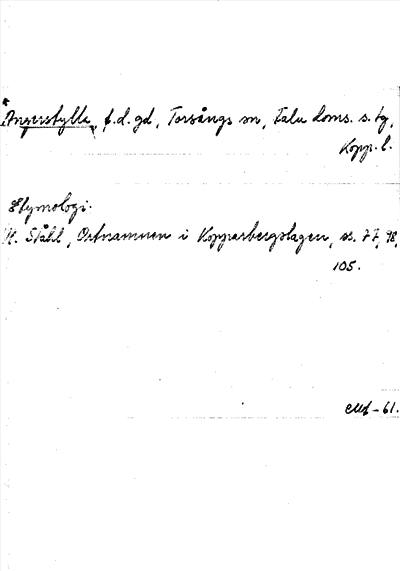 Ångerstylle, f.d. gd, Torsångs sn, Falu doms. s. tg,
Kopp. l.
Etymologi:
H. Ståhl, Ortnamnen i Kopparbergslagen, ss. 77, 98,
105.
-61.